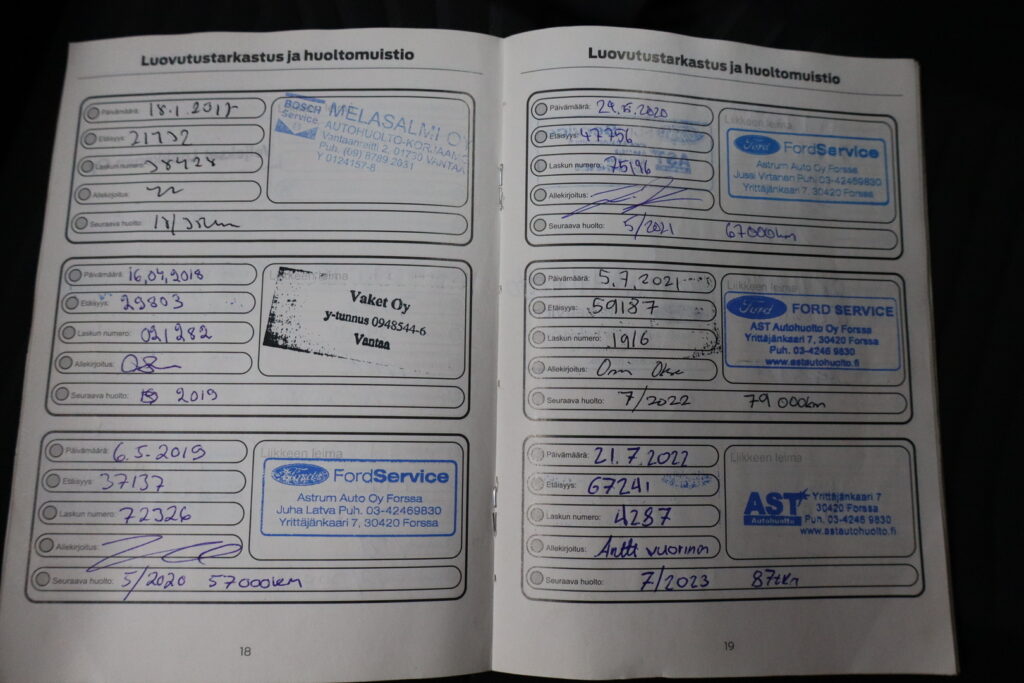 Luovutustarkastus ja huoltomuistio
Päivämäärä: 18.1.2017
Etäisyys: 21732
Laskun numero: 38428
Allekirjoitus:
Seuraava huolto: 18/
BOSCH Service
MELASALMI OY
AUTOHUOLTO-KORJAAMO
Vantaanreitti 2, 01730 VANTAA
Puh. (09) 8789 2031
Y 0124157-8
Päivämäärä: 16,04,2018
Etäisyys: 29803
Laskun numero: 021282
Allekirjoitus:
Seuraava huolto: 2019
Liikkeen leima
Vaket Oy
y-tunnus 0948544-6
Vantaa
Päivämäärä: 6.5.2019
Etäisyys: 37137
Laskun numero: 72326
Allekirjoitus:
Seuraava huolto: 5/2020 57000km
Liikkeen leima
FordService
Astrum Auto Oy Forssa
Juha Latva Puh. 03-42469830
Yrittäjänkaari 7, 30420 Forssa
18
Luovutustarkastus ja huoltomuistio
Päivämäärä: 2020
Etäisyys: 47756
Laskun numero: 75196
Allekirjoitus:
Seuraava huolto: 5/2021 67000km
Liikkeen leima
Ford FordService
Astrum Auto Oy Forssa
Jussi Virtanen Puh. 03-42469830
Yrittäjänkaari 7, 30420 Forssa
Päivämäärä: 5.7.2021
Etäisyys: 59187
Laskun numero: 1916
Allekirjoitus:
Seuraava huolto: 7/2022 79000km
Liikkeen leima
Ford FORD SERVICE
AST Autohuolto Oy Forssa
Yrittäjänkaari 7, 30420 Forssa
Puh. 03-4246 9830
www.astautohuolto.fi
Päivämäärä: 21.7.2022
Etäisyys: 67241
Laskun numero: 4287
Allekirjoitus: Antti Vuorinen
Seuraava huolto: 7/2023 87tkm
Liikkeen leima
AST Autohuolto
Yrittäjänkaari 7
30420 Forssa
Puh. 03-4246 9830
www.astautohuolto.fi
19